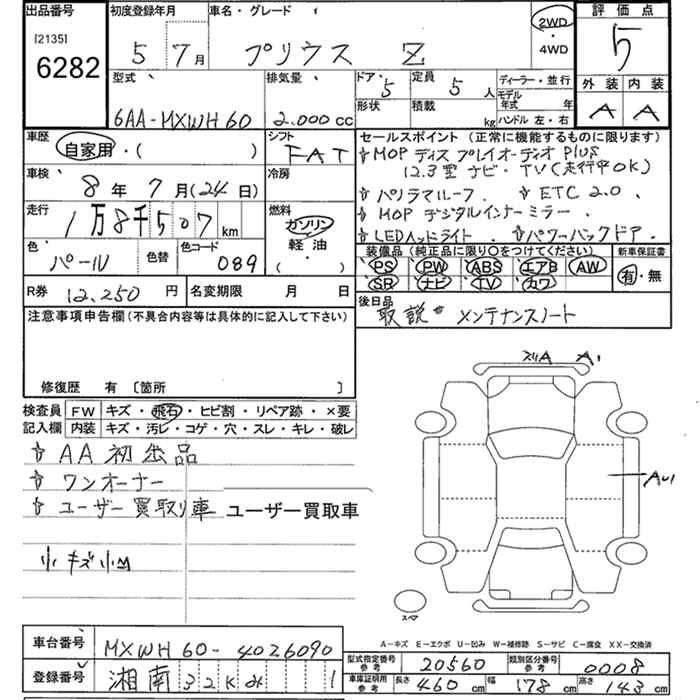 出品番号
[2135]
6282
初度登録年月
5 7月
車名・グレード
プリウス Z
2WD
・4WD
評価点
5
外装 内装
A A
型式
6AA-MXWH60
排気量
2.000 cc
ドア 5
形状
定員 5 人
積載 kg
ディーラー・並行
モデル年式 年
ハンドル 左・右
車歴
自家用・( )
シフト
FAT
車検
8年 7月(24日)
冷房
走行
1万8千507 km
燃料
ガソリン
軽油
( ・ )
色
パール
色替
色コード
089
セールスポイント (正常に機能するものに限ります)
☆MOP ディスプレイオーディオ Plus
12.3型 ナビ・TV(走行中OK)
☆パノラマルーフ. ☆ETC 2.0.
☆MOP デジタルインナーミラー.
☆LEDヘッドライト. ☆パワーバックドア.
装備品 (純正品に限り○をつけてください)
PS PW ABS エアB AW
SR ナビ TV カワ
新車保証書
有・無
R券 12,250 円
名変期限 月 日
後日品
取説 メンテナンスノート
注意事項申告欄(不具合内容等は具体的に記入して下さい)
修復歴 有 〔箇所 〕
検査員記入欄
FW キズ・飛石・ヒビ割・リペア跡・×要
内装 キズ・汚レ・コゲ・穴・スレ・キレ・破レ
☆AA初出品
☆ワンオーナー
☆ユーザー買取り車 ユーザー買取車
小キズ小凹
スリA A1
AU1
スペア
A-キズ E-エクボ U-凹み W-補修跡 S-サビ C-腐食 XX-交換済
車台番号 MXWH60-4026090
登録番号 湘南 32K 1
型式指定番号参考 20560
類別区分番号参考 0008
車庫証明用参考 長さ 460 cm 幅 178 cm 高さ 143 cm